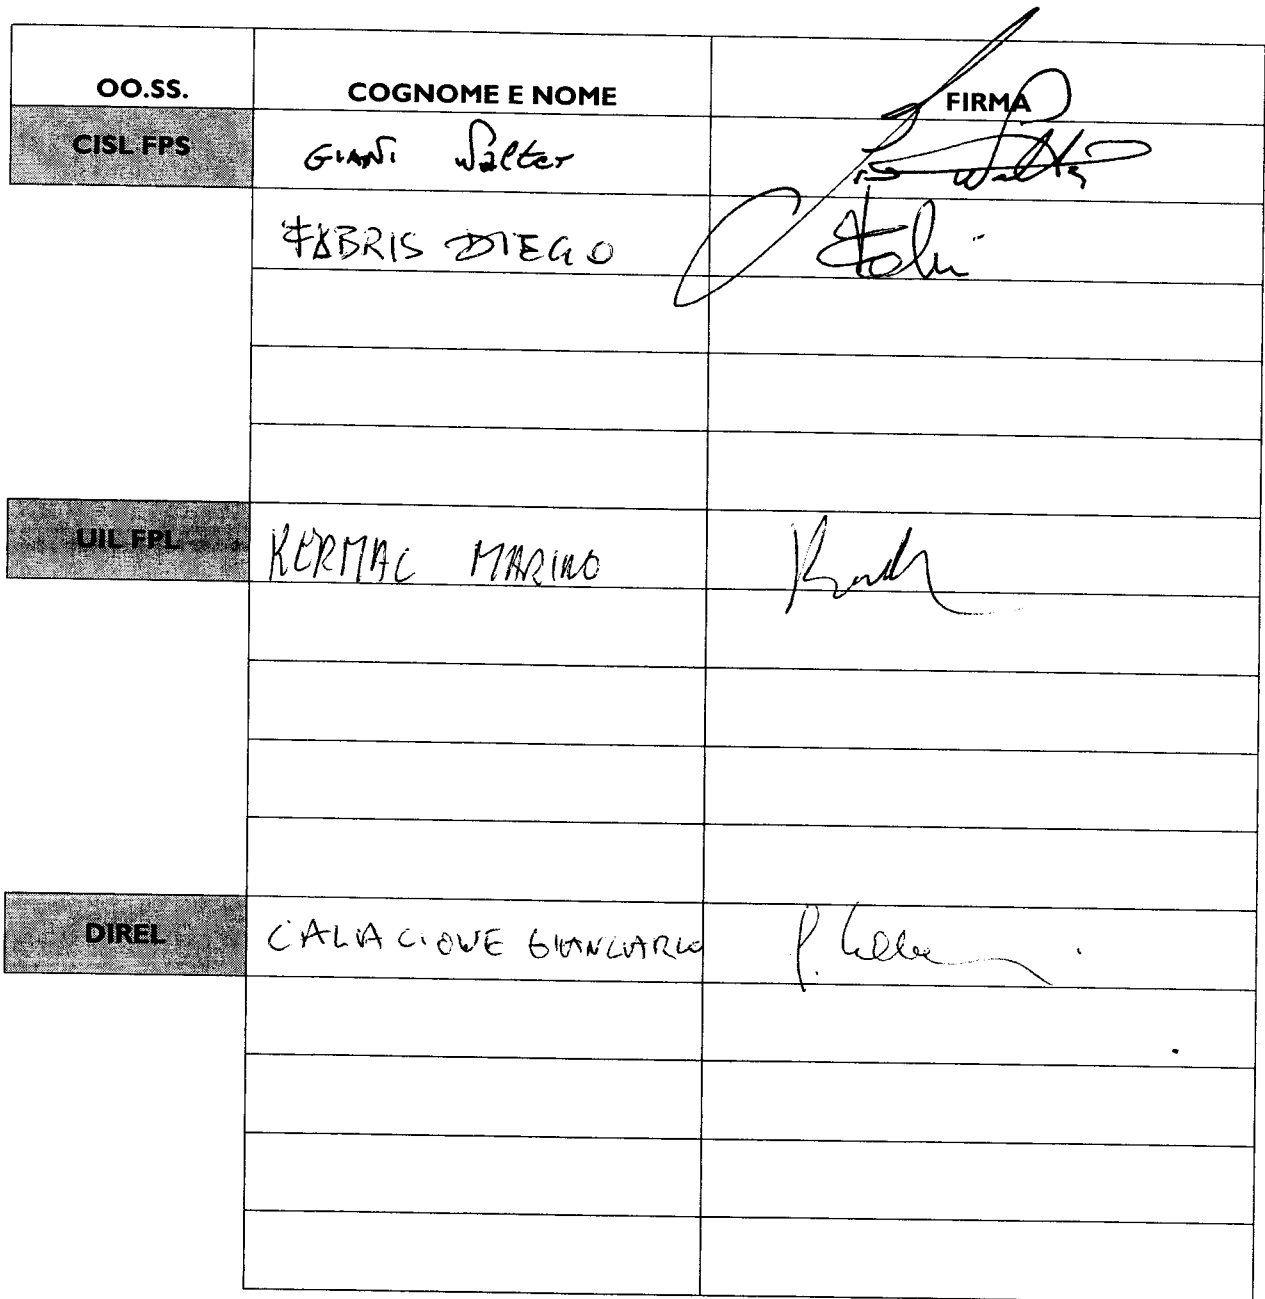 OO.SS. COGNOME E NOME FIRMA
CISL FPS GIANI Walter
FABRIS DIEGO
UIL FPL KERMAC MARINO
DIREL GIANCARLO